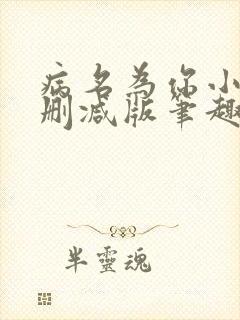 病名为你小
删减版笔趣
半靈魂